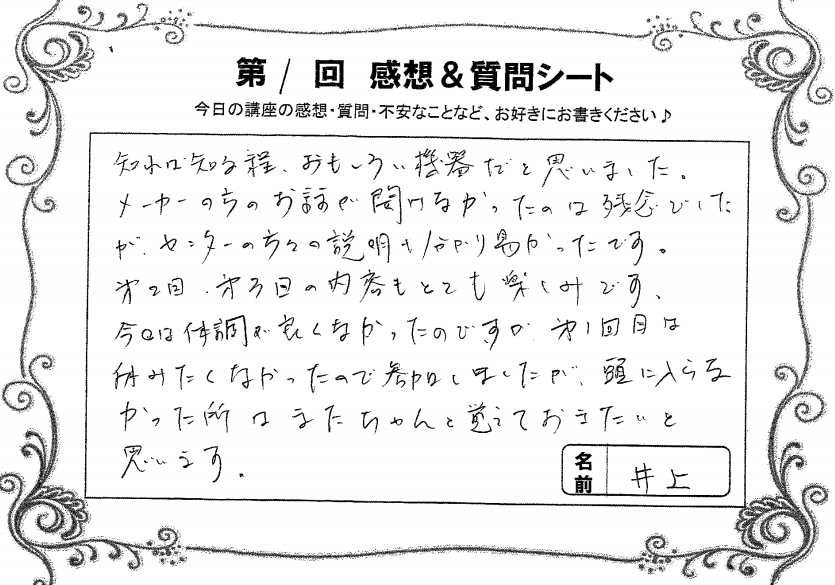 第1回 感想&質問シート
今日の講座の感想・質問・不安なことなど、お好きにお書きください♪
知れば知る程、おもしろい機器だと思いました。
メーカーの方のお話が聞けなかったのは残念でした
が、センターの方々の説明も分かり易かったです。
第2回、第3回の内容もとても楽しみです、
今日は体調が良くなかったのですが、第1回目は
休みたくなかったので参加しましたが、頭に入らな
かった所はまたちゃんと覚えておきたいと
思います。
名前 井上